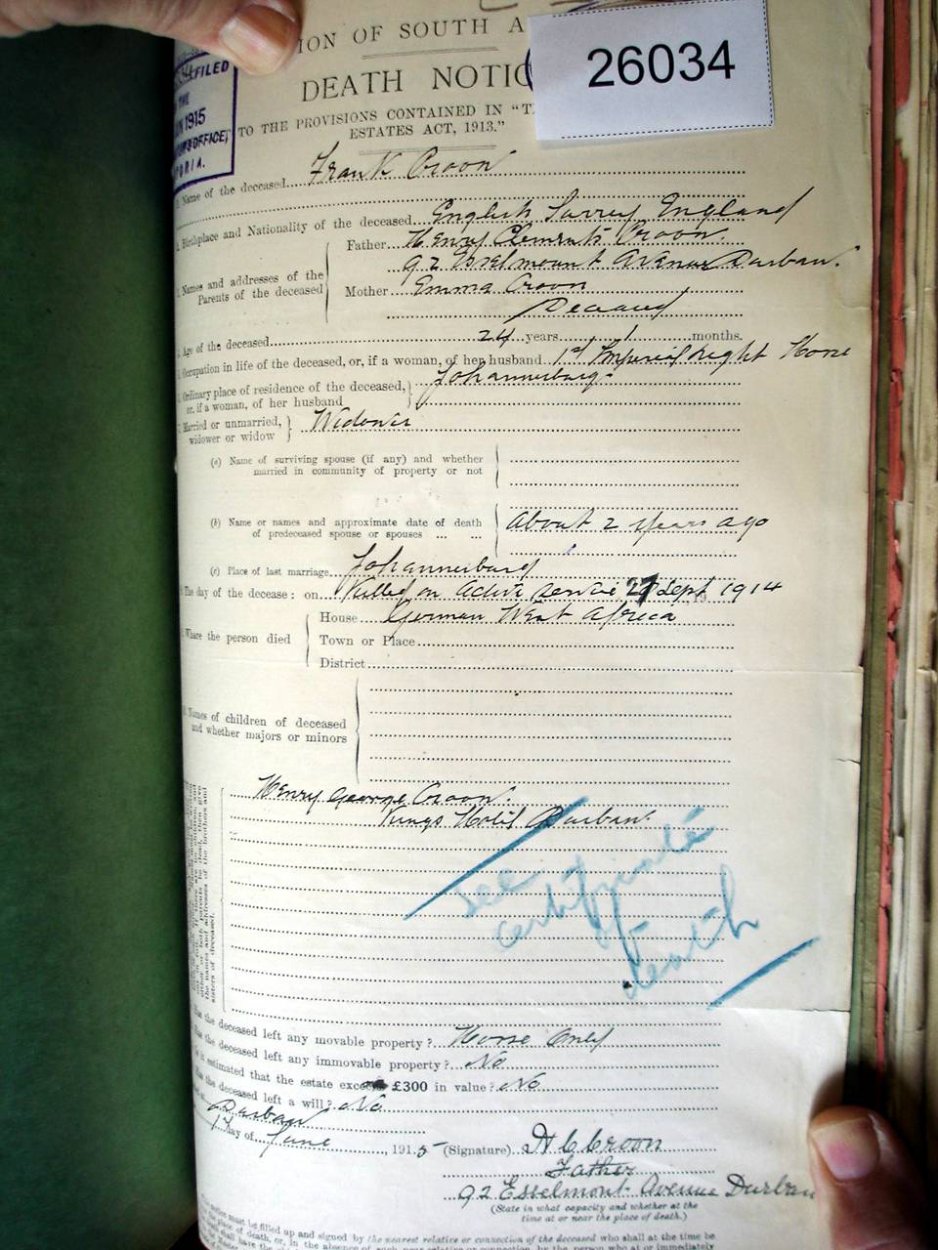 ION OF SOUTH A
26034
DEATH NOTIC
FILED
THE
1915
OFFICE,
ORIA.
TO THE PROVISIONS CONTAINED IN "T
ESTATES ACT, 1913."
Name of the deceased Frank Croon
Birthplace and Nationality of the deceased English Surrey England
Names and addresses of the Parents of the deceased
Father Henry Clements Croon
92 Esselmount Avenue Durban.
Mother Emma Croon
Deceased
Age of the deceased 24 years 1 months.
Occupation in life of the deceased, or, if a woman, of her husband 1st Imperial Light Horse
Ordinary place of residence of the deceased, or, if a woman, of her husband Johannesburg.
Married or unmarried, widower or widow Widower
(a) Name of surviving spouse (if any) and whether
married in community of property or not
(b) Name or names and approximate date of death
of predeceased spouse or spouses ... ... About 2 years ago
(c) Place of last marriage Johannesburg
The day of the decease: on Killed on Active Service 27 Sept 1914
Where the person died
House German West Africa
Town or Place
District
Names of children of deceased
and whether majors or minors
Henry George Croon.
Kings Hotel Durban.
see
certificate
of
death
the deceased left any movable property? Horse Only
the deceased left any immovable property? No
estimated that the estate exceeds £300 in value? No
the deceased left a will? No
Durban
1st day of June, 1915 (Signature) H C Croon
Father
92 Esselmont Avenue Durban
(State in what capacity and whether at the
time at or near the place of death.)
must be filled up and signed by the nearest relative or connection of the deceased who shall at the time be